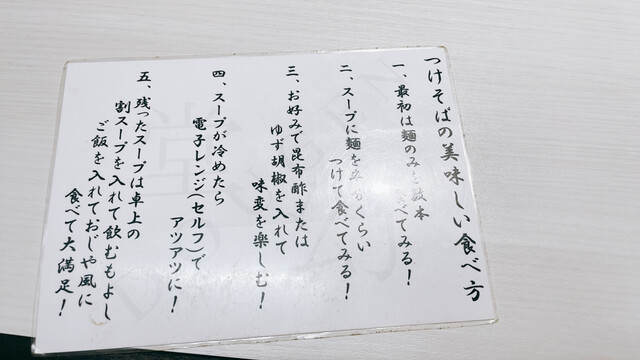 つけそばの美味しい食べ方
一、最初は麺のみを数本
食べてみる！
二、スープに麺を半分くらい
つけて食べてみる！
三、お好みで昆布酢または
ゆず胡椒を入れて
味変を楽しむ！
四、スープが冷めたら
電子レンジ（セルフ）で
アツアツに！
五、残ったスープは卓上の
割スープを入れて飲むもよし
ご飯を入れておじや風に
食べて大満足！